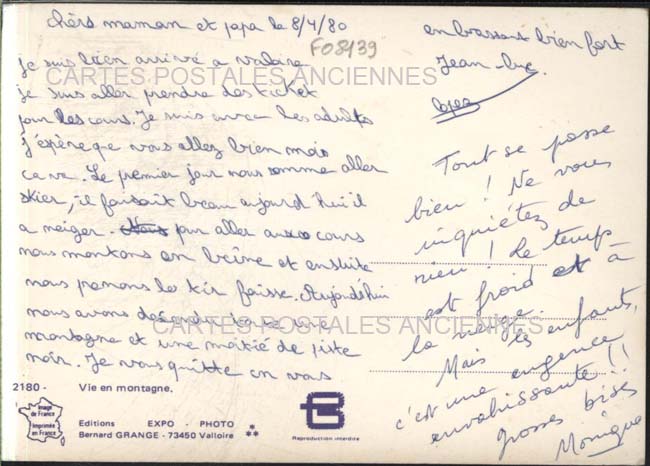 chèrs maman et papa le 8/4/80
F08/139
je suis bien arrivé a valoire
je suis aller prendre des ticket
pour les cours. Je suis avec les adultes
j'éspère que vous allez bien mois
ca va. Le premier jour nous somme aller
skier, il faisait beau aujourd hui il
a neiger. Nous pour aller aux cours
nous montons en beine et ensuite
nous prenons le tir faisse. Aujourd'hui
nous avons déscendu toute une
montagne et une moitié de piste
noir. Je vous quitte en vous
embrassant bien fort
Jean-luc.
lopez
Tout se passe
bien ! Ne vous
inquiétez de
rien ! Le temps
est froid et à
la neige.
Mais les enfants,
c'est une engeance
envahissante !!
grosses bises
Monique
CARTES POSTALES ANCIENNES
CARTES POSTALES ANCIENNES
2180 - Vie en montagne.
Image
de France
Imprimée
en France
Editions EXPO - PHOTO *
Bernard GRANGE - 73450 Valloire **
Reproduction interdite